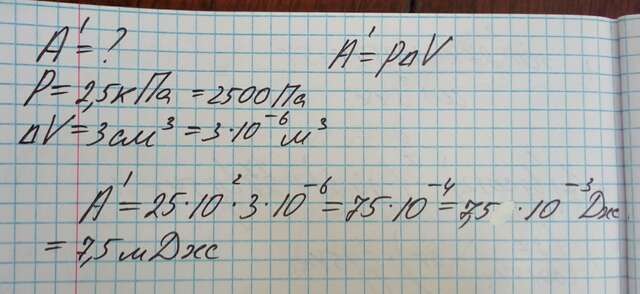 A' = ?
A' = pΔV
P = 2,5 кПа = 2500 Па
ΔV = 3 см³ = 3·10⁻⁶ м³
A' = 25·10²·3·10⁻⁶ = 75·10⁻⁴ = 7,5 ·10⁻³ Дж
= 7,5 мДж